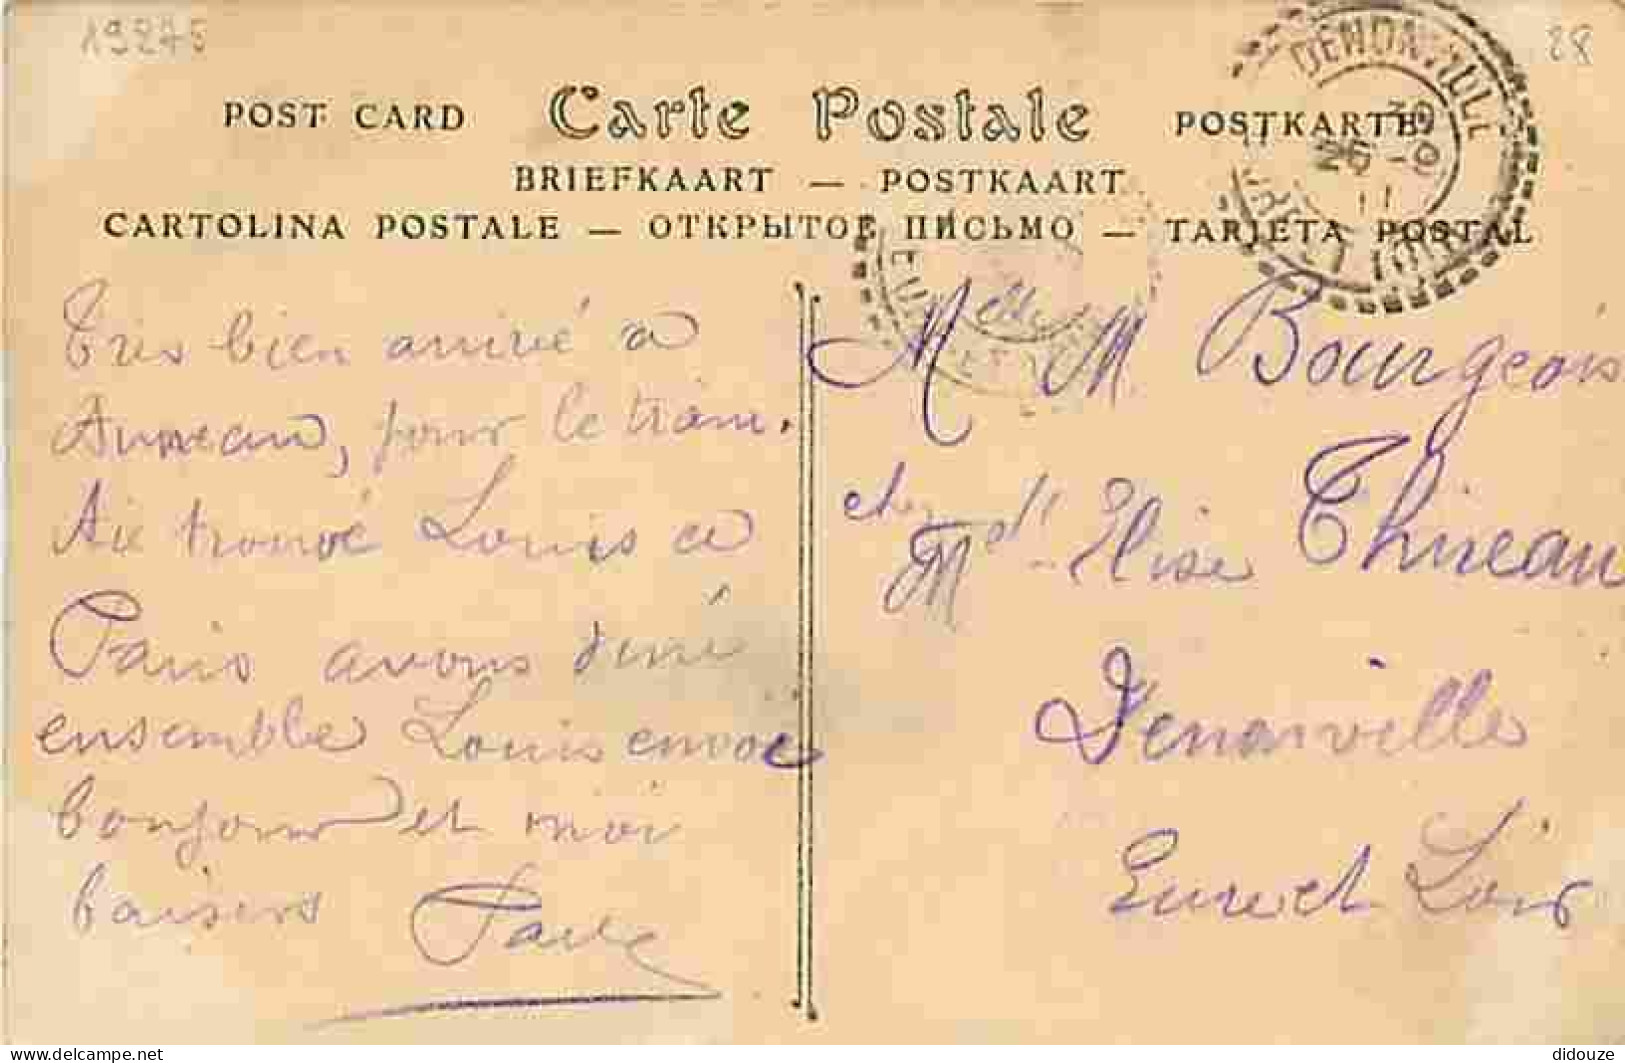 19275
28
POST CARD Carte Postale POSTKARTE
BRIEFKAART — POSTKAART
CARTOLINA POSTALE — ОТКРЫТОЕ ПИСЬМО — TARJETA POSTAL
DENONVILLE
Très bien arrivé a
Auneau, pour le train.
Ai trouvé Louis a
Paris avons diné
ensemble Louis envoie
bonjour et moi
baisers
M M Bourgeois
chez
Melle Elise Thireau
Denonville
Eure et Loir
www.delcampe.net
didouze